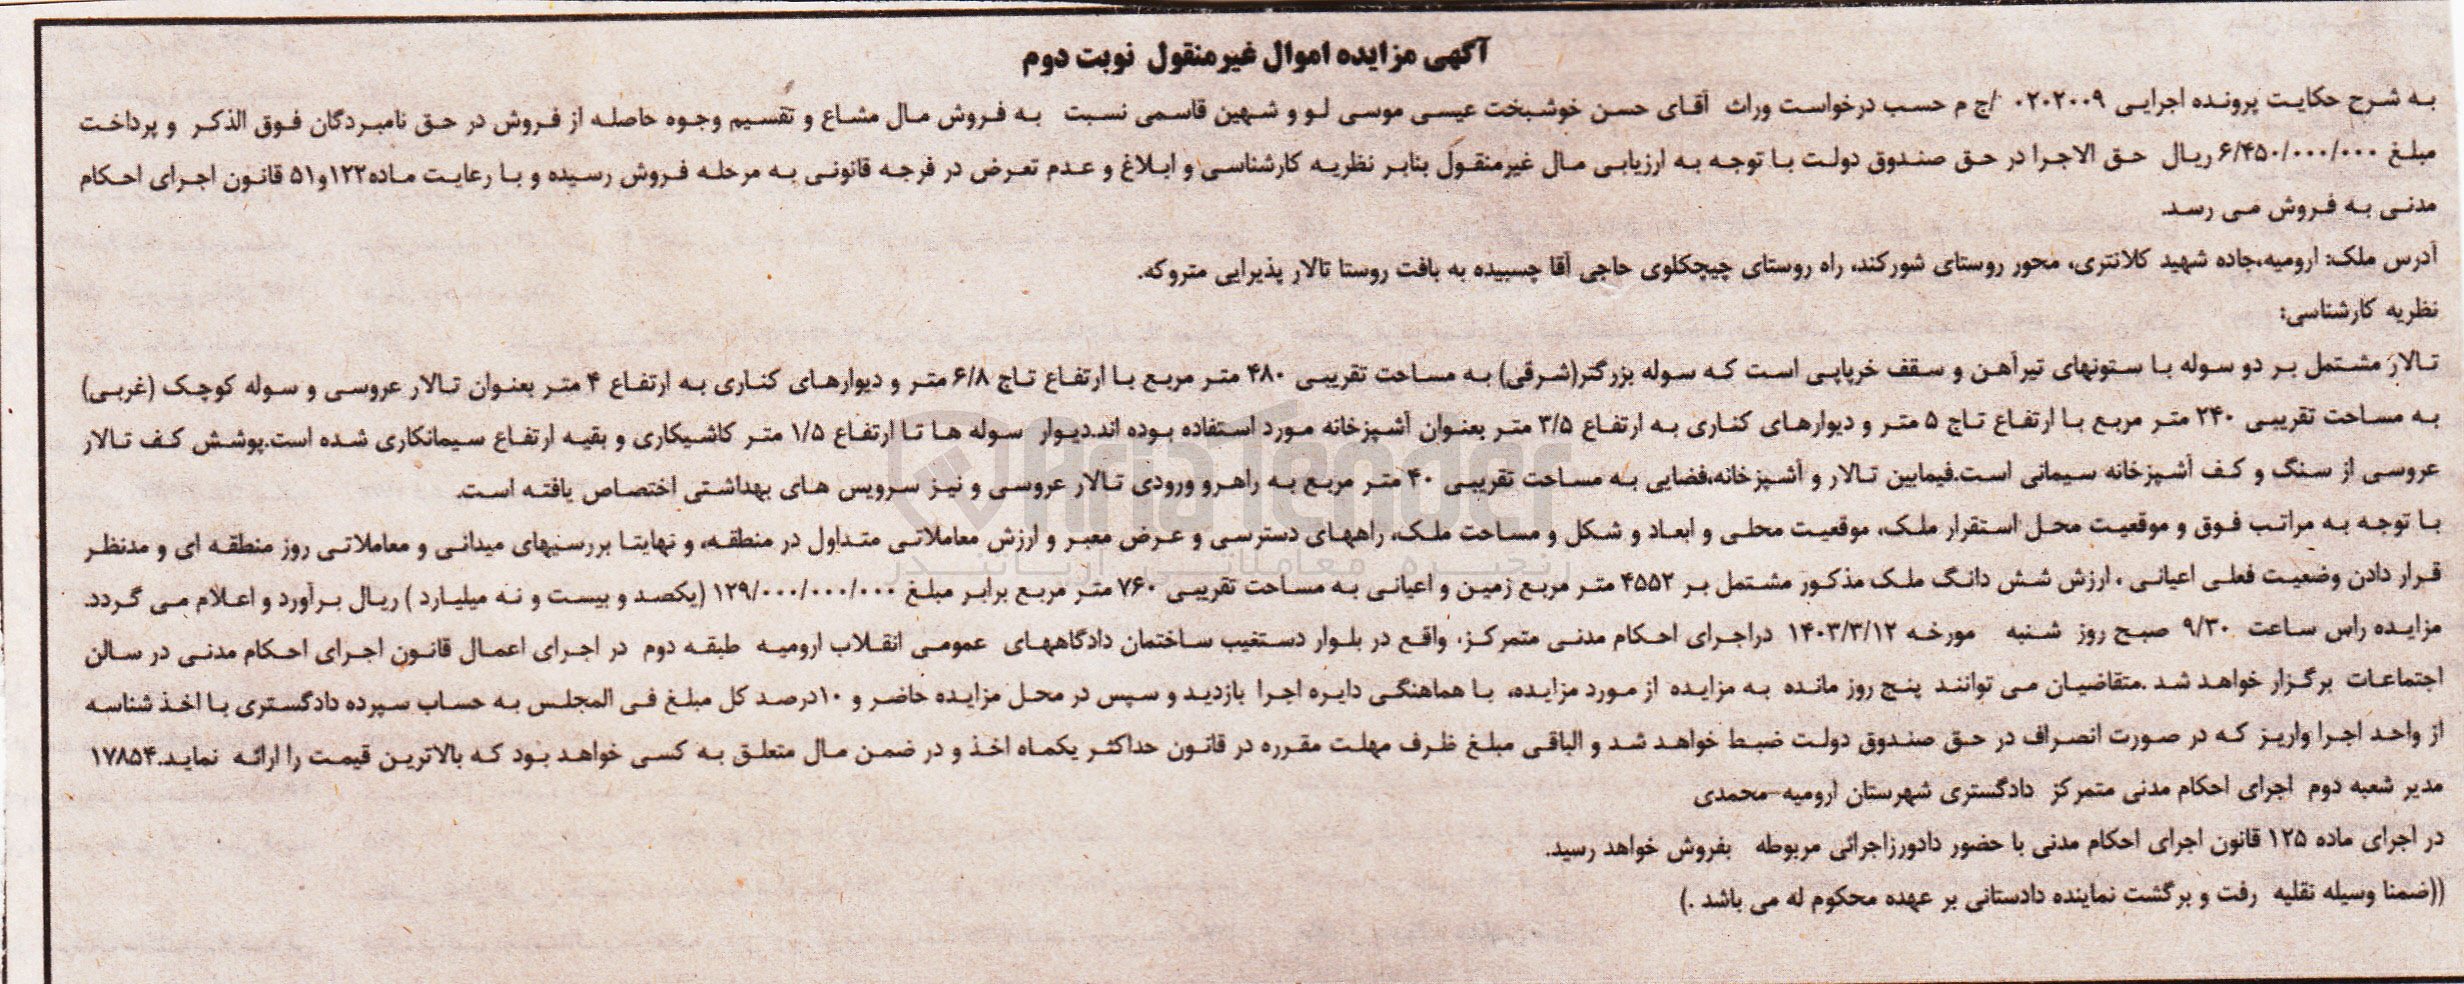 آگهی مزایده اموال غیرمنقول نوبت دوم
به شرح حکایت پرونده اجرایی ۰۲۰۲۰۰۹ /ج م حسب درخواست وراث آقای حسن خوشبخت عیسی موسی لو و شهین قاسمی نسبت به فروش مال مشاع و تقسیم وجوه حاصله از فروش در حق نامبردگان فوق الذکر و پرداخت
مبلغ ۶/۴۵۰/۰۰۰/۰۰۰ ریال حق الاجرا در حق صندوق دولت با توجه به ارزیابی مال غیرمنقول بنابر نظریه کارشناسی و ابلاغ و عدم تعرض در فرجه قانونی به مرحله فروش رسیده و با رعایت ماده۱۲۲و۵۱ قانون اجرای احکام
مدنی به فروش می رسد.
آدرس ملک: ارومیه،جاده شهید کلانتری، محور روستای شورکند، راه روستای چیچکلوی حاجی آقا چسبیده به بافت روستا تالار پذیرایی متروکه.
نظریه کارشناسی:
تالار مشتمل بر دو سوله با ستونهای تیرآهن و سقف خرپایی است که سوله بزرگتر(شرقی) به مساحت تقریبی ۴۸۰ متر مربع با ارتفاع تاج ۶/۸ متر و دیوارهای کناری به ارتفاع ۴ متر بعنوان تالار عروسی و سوله کوچک (غربی)
به مساحت تقریبی ۲۴۰ متر مربع با ارتفاع تاج ۵ متر و دیوارهای کناری به ارتفاع ۳/۵ متر بعنوان آشپزخانه مورد استفاده بوده اند.دیوار سوله ها تا ارتفاع ۱/۵ متر کاشیکاری و بقیه ارتفاع سیمانکاری شده است.پوشش کف تالار
عروسی از سنگ و کف آشپزخانه سیمانی است.فیمابین تالار و آشپزخانه،فضایی به مساحت تقریبی ۴۰ متر مربع به راهرو ورودی تالار عروسی و نیز سرویس های بهداشتی اختصاص یافته است.
با توجه به مراتب فوق و موقعیت محل استقرار ملک، موقعیت محلی و ابعاد و شکل و مساحت ملک، راههای دسترسی و عرض معبر و ارزش معاملاتی متداول در منطقه، و نهایتا بررسیهای میدانی و معاملاتی روز منطقه ای و مدنظر
قرار دادن وضعیت فعلی اعیانی ، ارزش شش دانگ ملک مذکور مشتمل بر ۴۵۵۲ متر مربع زمین و اعیانی به مساحت تقریبی ۷۶۰ متر مربع برابر مبلغ ۱۲۹/۰۰۰/۰۰۰/۰۰۰ (یکصد و بیست و نه میلیارد ) ریال برآورد و اعلام می گردد.
مزایده راس ساعت ۹/۳۰ صبح روز شنبه مورخه ۱۴۰۳/۳/۱۲ دراجرای احکام مدنی متمرکز، واقع در بلوار دستغیب ساختمان دادگاههای عمومی انقلاب ارومیه طبقه دوم در اجرای اعمال قانون اجرای احکام مدنی در سالن
اجتماعات برگزار خواهد شد .متقاضیان می توانند پنج روز مانده به مزایده از مورد مزایده، با هماهنگی دایره اجرا بازدید و سپس در محل مزایده حاضر و ۱۰درصد کل مبلغ فی المجلس به حساب سپرده دادگستری با اخذ شناسه
از واحد اجرا واریز که در صورت انصراف در حق صندوق دولت ضبط خواهد شد و الباقی مبلغ ظرف مهلت مقرره در قانون حداکثر یکماه اخذ و در ضمن مال متعلق به کسی خواهد بود که بالاترین قیمت را ارائه نماید.۱۷۸۵۴
مدیر شعبه دوم اجرای احکام مدنی متمرکز دادگستری شهرستان ارومیه-محمدی
در اجرای ماده ۱۲۵ قانون اجرای احکام مدنی با حضور دادورزاجرائی مربوطه بفروش خواهد رسید.
((ضمنا وسیله نقلیه رفت و برگشت نماینده دادستانی بر عهده محکوم له می باشد .)
AriaTender
زنجیره معاملاتی آریاتندر